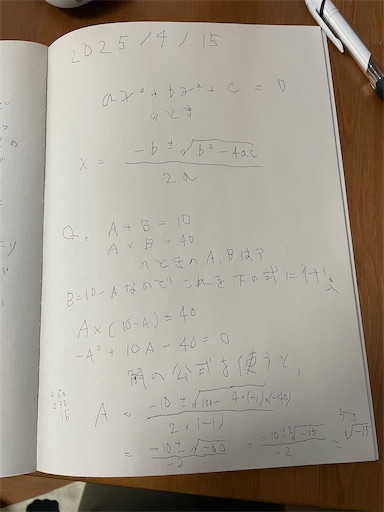 2025/4/15
ax²+bx²+c=0
のとき
x = (-b±√(b²-4ac))/2a
Q. A+B=10
A×B=40
のときのA、Bは?
B=10-Aなので これを下の式に代入
A×(10-A)=40
-A²+10A-40=0
解の公式を使うと、
A = (-10±√(100-4×(-1)×(-40)))/(2×(-1))
= (-10±√(-60))/-2 = (-10±2√(-15))/-2 = 5±√(-15)